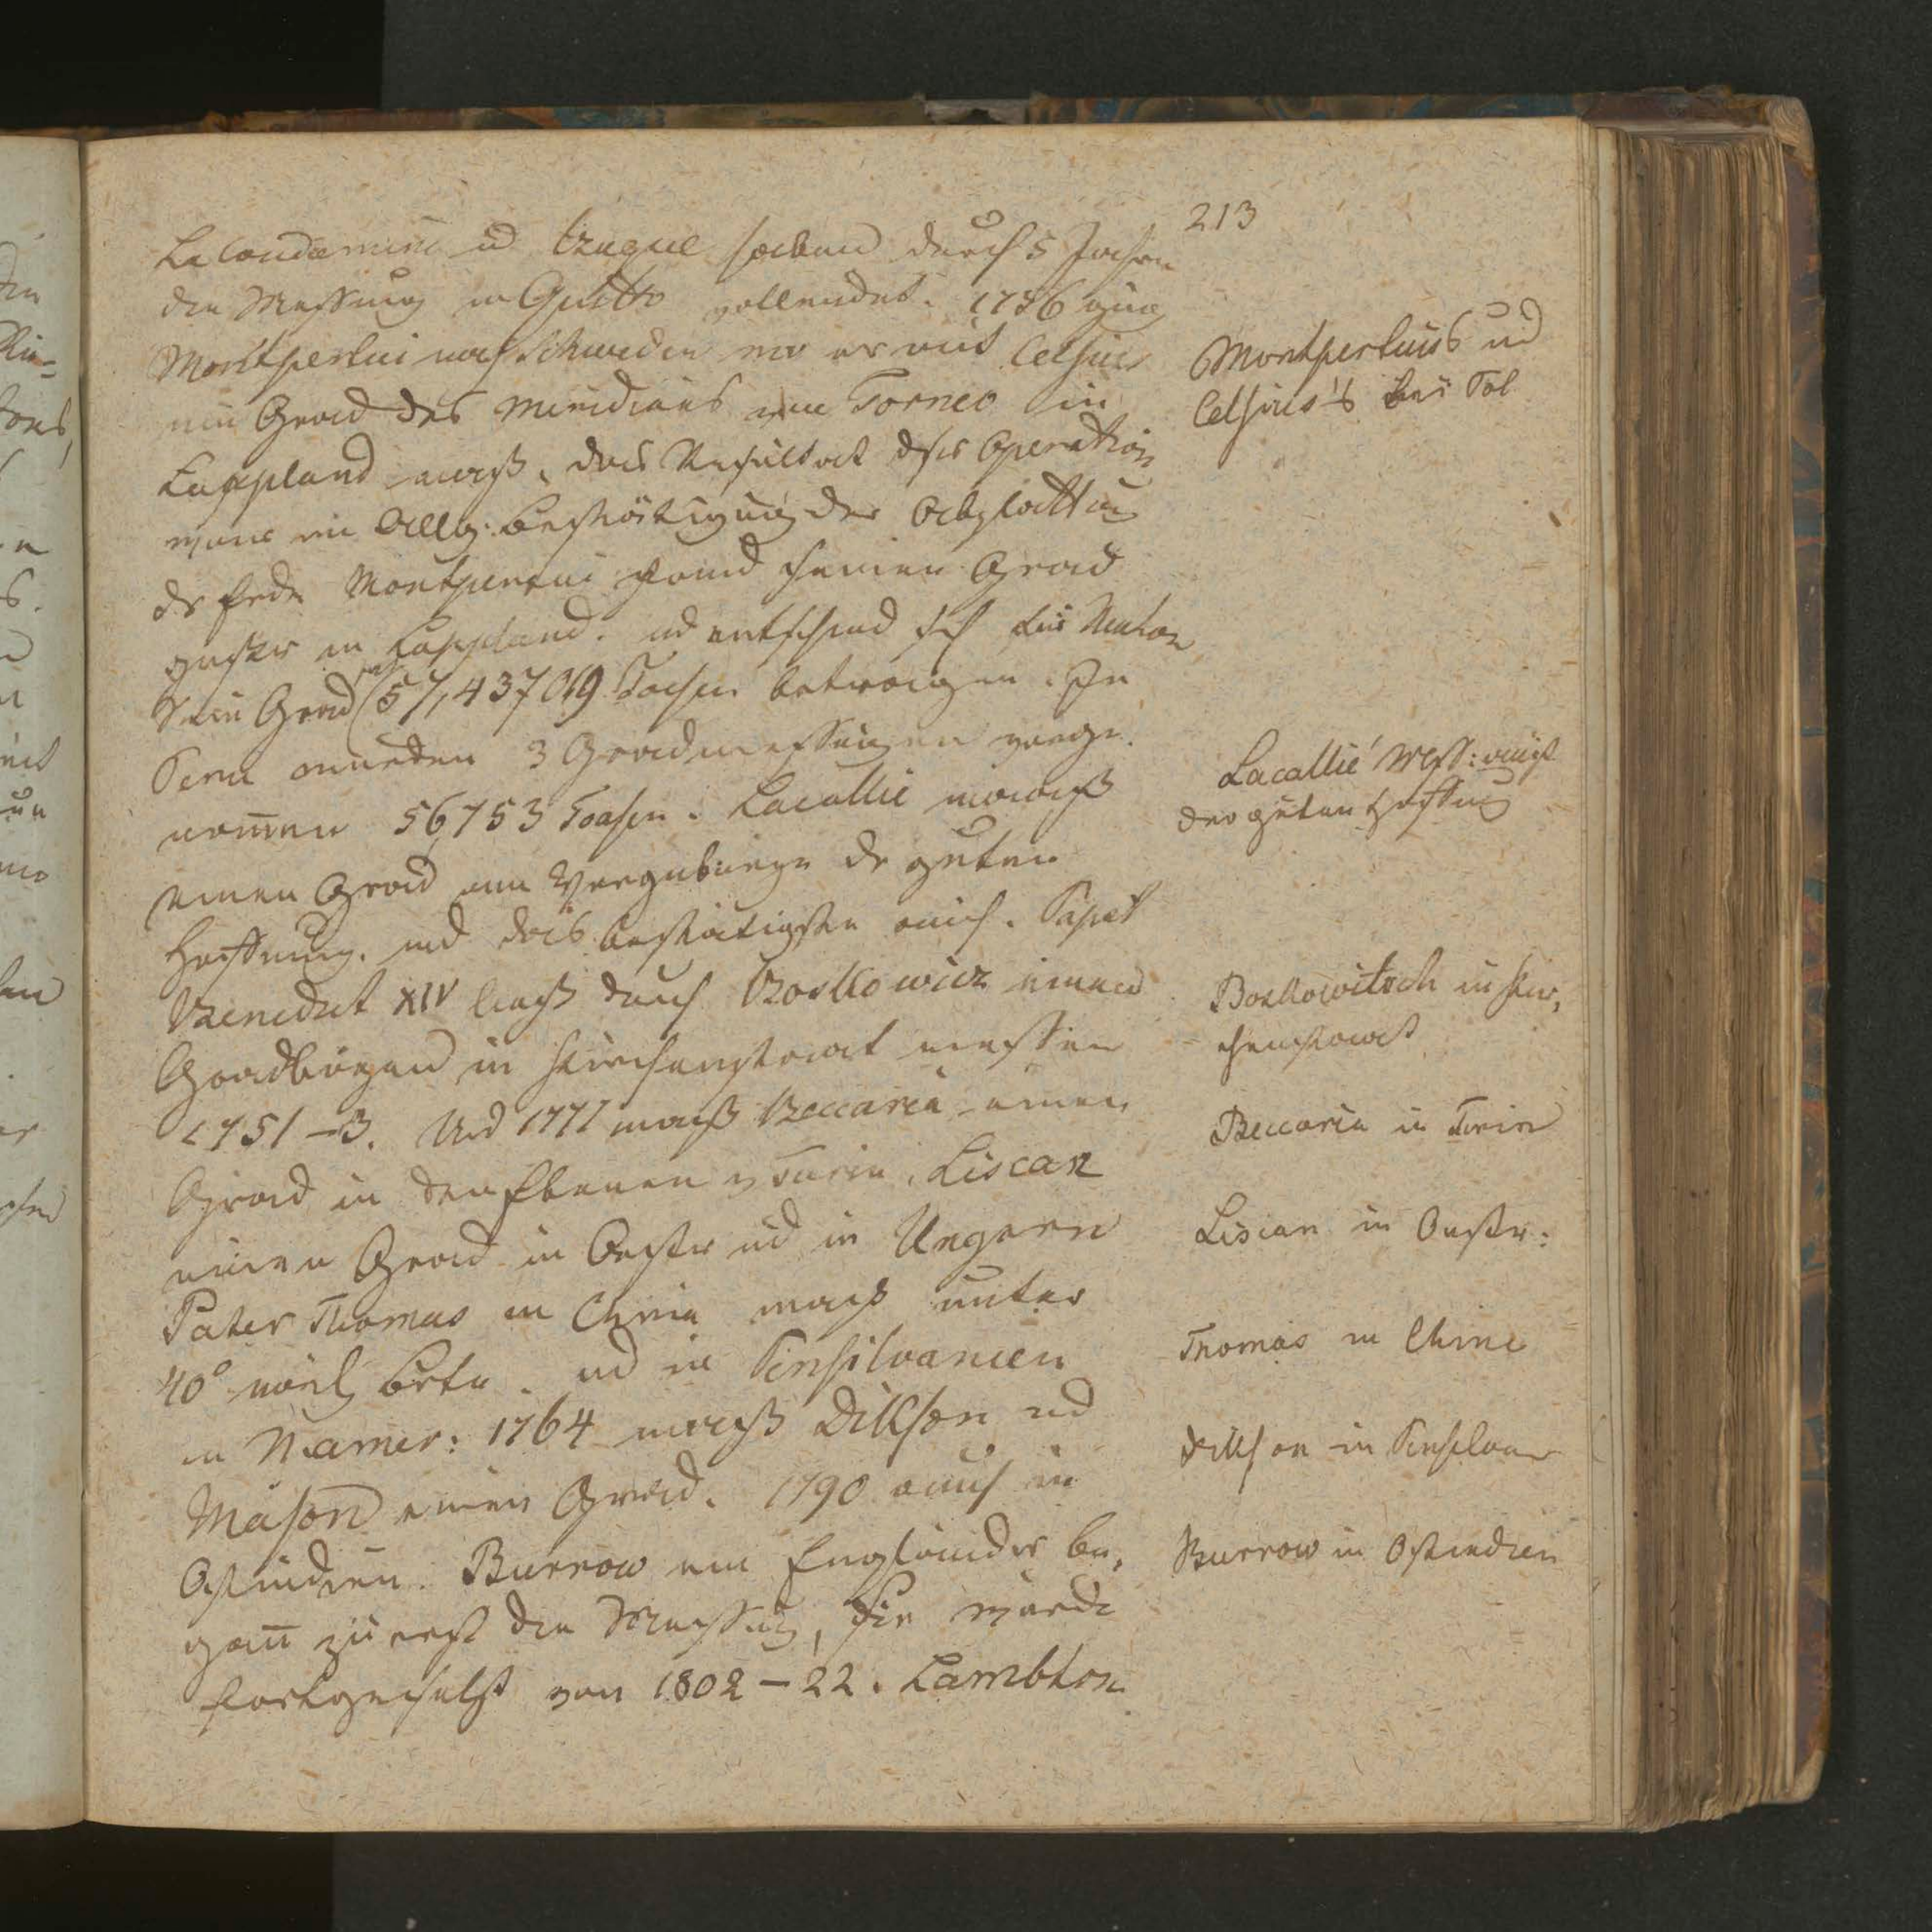 213
LaCondamine ud Bugue haben durch 5 Jahre
die Messung in Quitto vollendet. 1736 ging
Montpertui nach Schweden wo er mit Celsius
ein Grad des Meridians von Torneo in
Lappland maß, das Resultat dser Operation
war die Allg. Bestätigung der Abplattung
dr Erde Montpertui fand seinen Grad
größer in Lappland. ud entschied sich für Neuton
Sein Grad 57,437019 Toasen betragen. In
Peru wurden 3 Gradmessungen vorge
nom̅en 56,753 Toasen. Lacallié maaß
einen Grad am Vorgebirge dr guten
Hoffnung. und das bestätigte auch. Papst
Benedict XIV ließ durch Boskowicz einen
Gradbogen in Kirchenstaat messen
1751–3. Und 1777 maß Beccaria einen
Grad in den Ebenen v Turin. Liscan
einen Grad in Oestr ud in Ungarn
Pater Thomas in China maß unter
40° nördl Brte. ud in Pensilvanien
in Namer: 1764 maaß Dikson ud
Mason einen Grad. 1790 auch in
Ostindien. Burrow ein Engländer be,
gan̅ zuerst die Messung, sie wurde
fortgesetzt von 1802–22. Lambton.
Montpertuis ud
Celsius's bei Pol
Lacallié Mess: auf
der guten Hoffnug
Boskowitsch in Kir,
chenstaat
Beccaria in Turin
Liscan in Oestr:
Thomas in Chine
Dikson in Pensilvan
Burrow in Ostindien